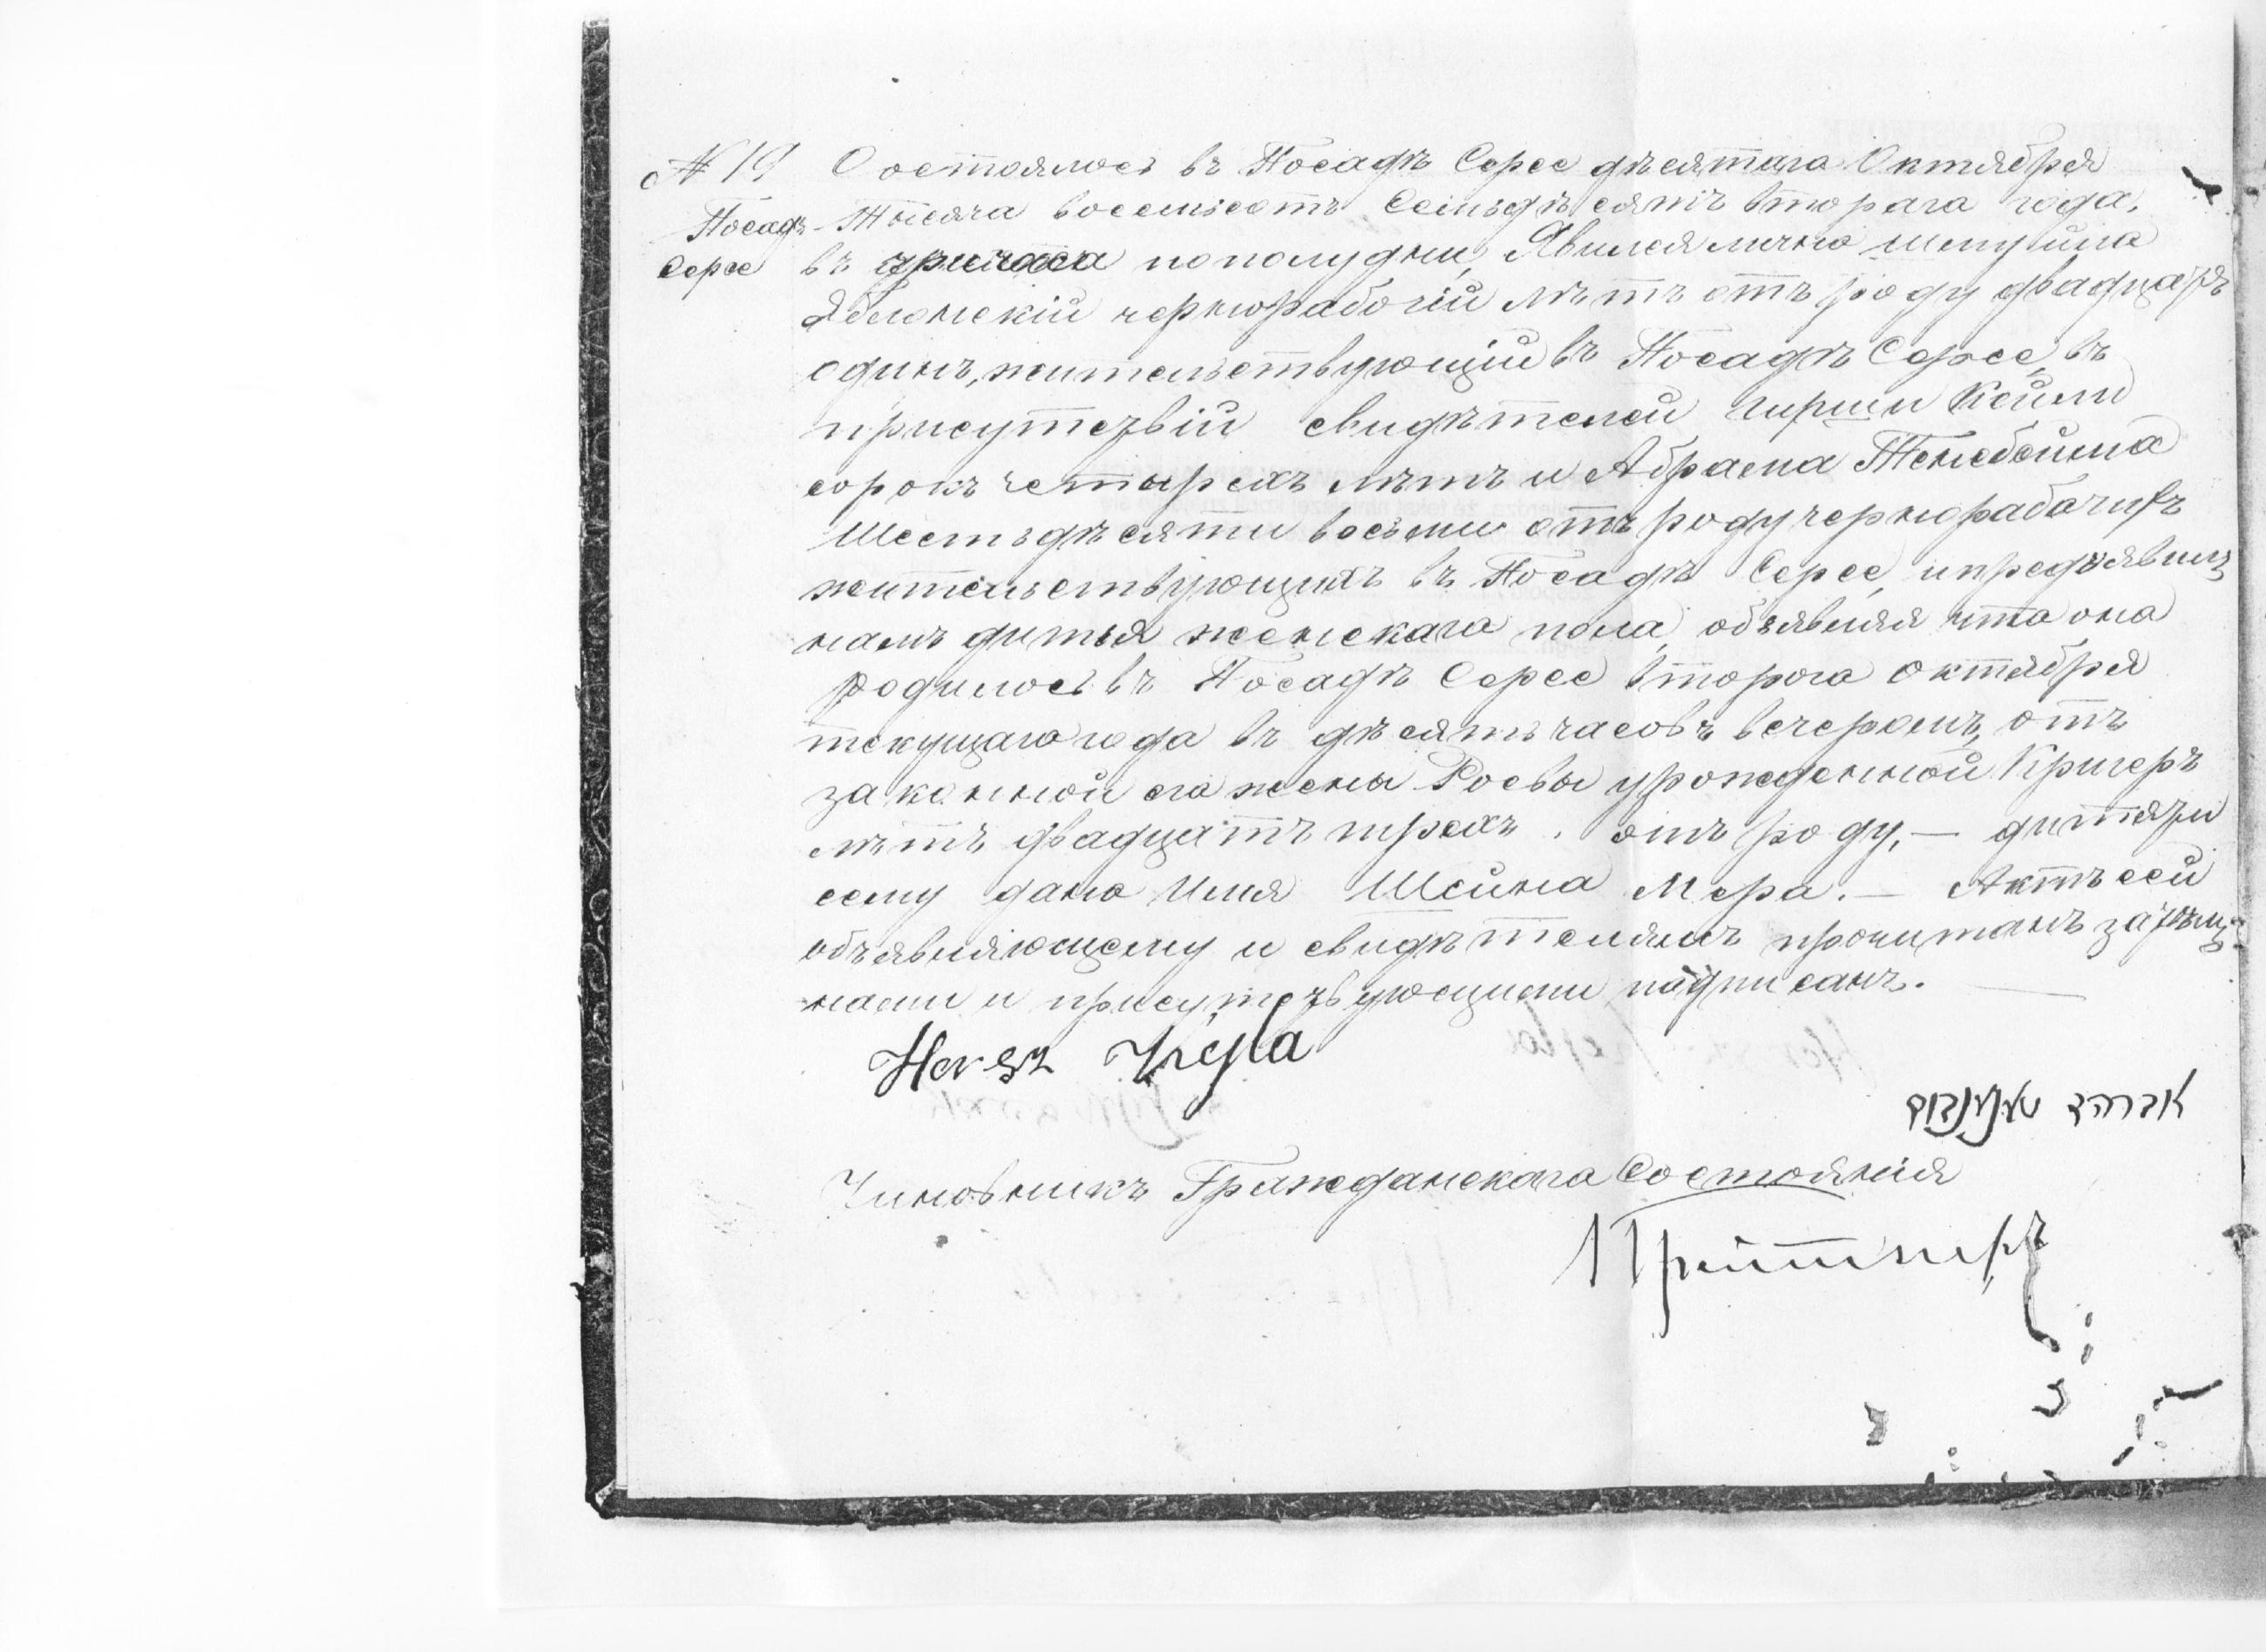 № 19 Состоялось въ Посадѣ Серее дѣсятаго Октября
Посадъ Тысяча восемьсотъ Семьдѣсятъ втораго года,
Серее въ три часа пополудни, Явился лично
Яблонскій чернорабочій лѣтъ отъ роду двадцать
одинъ, жительствующій въ Посадѣ Серее, въ
присутствіи свидѣтелей Гирши Кейли
сорокъ четырехъ лѣтъ и Абрама
Шестьдѣсяти восьми отъ роду чернорабочихъ
жительствующихъ въ Посадѣ Серее, и предъявилъ
намъ дитья женскаго пола, объявляя что она
родилось въ Посадѣ Серее втораго Октября
текущаго года въ дѣсять часовъ вечеромъ, отъ
законной его жены Росвы урожденной Кригеръ
лѣтъ двадцатъ трехъ. отъ роду, — дитяти
сему дано Имя Шейна Мера. — Актъ сей
объявляющему и свидѣтелямъ прочитанъ затѣмъ
нами и присутствующими подписанъ. —
אברהם
Чиновникъ Гражданскаго Состоянія